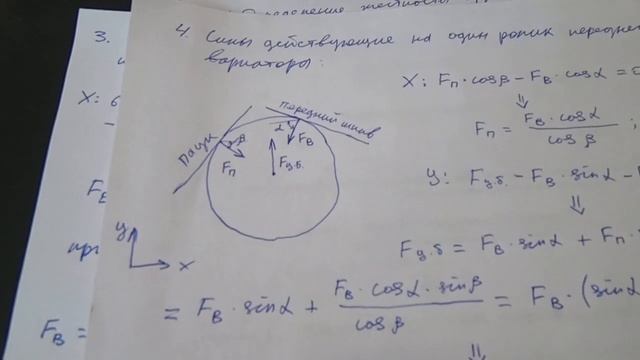 3.
X: 6
F_B
F_B =
4. Силы действующие на один ролик передне
вариаторы:
Паук
передний шкив
α
β
F_B
F_П
F_ц.б.
y
x
X: F_П · cosβ - F_B · cosα =
⇓
F_П = F_B · cosα / cosβ ;
y: F_ц.б. - F_B · sinα -
⇓
F_ц.б = F_B · sinα + F_П ·
= F_B · sinα + F_B · cosα · sinβ / cosβ = F_B · (sinα
⇓